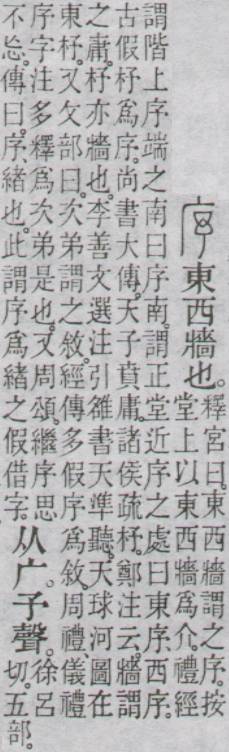 序東西牆也。
釋宮曰。東西牆謂之序。按
堂上以東西牆爲介。禮經
謂階上序端之南曰序南。謂正堂近序之處曰東序西序。
古假杼爲序。尚書大傳。天子賁庸。諸侯疏杼。鄭注云。牆謂
之庸。杼亦牆也。李善文選注引雒書天準聽。天球河圖在
東杼。又攵部曰。次弟謂之敘。經傳多假序爲敘。周禮、儀禮
序字注多釋爲次弟是也。又周頌。繼序思
不忘。傳曰。序、緒也。此謂序爲緒之假借字。
从广。予聲。
徐呂
切。五部。